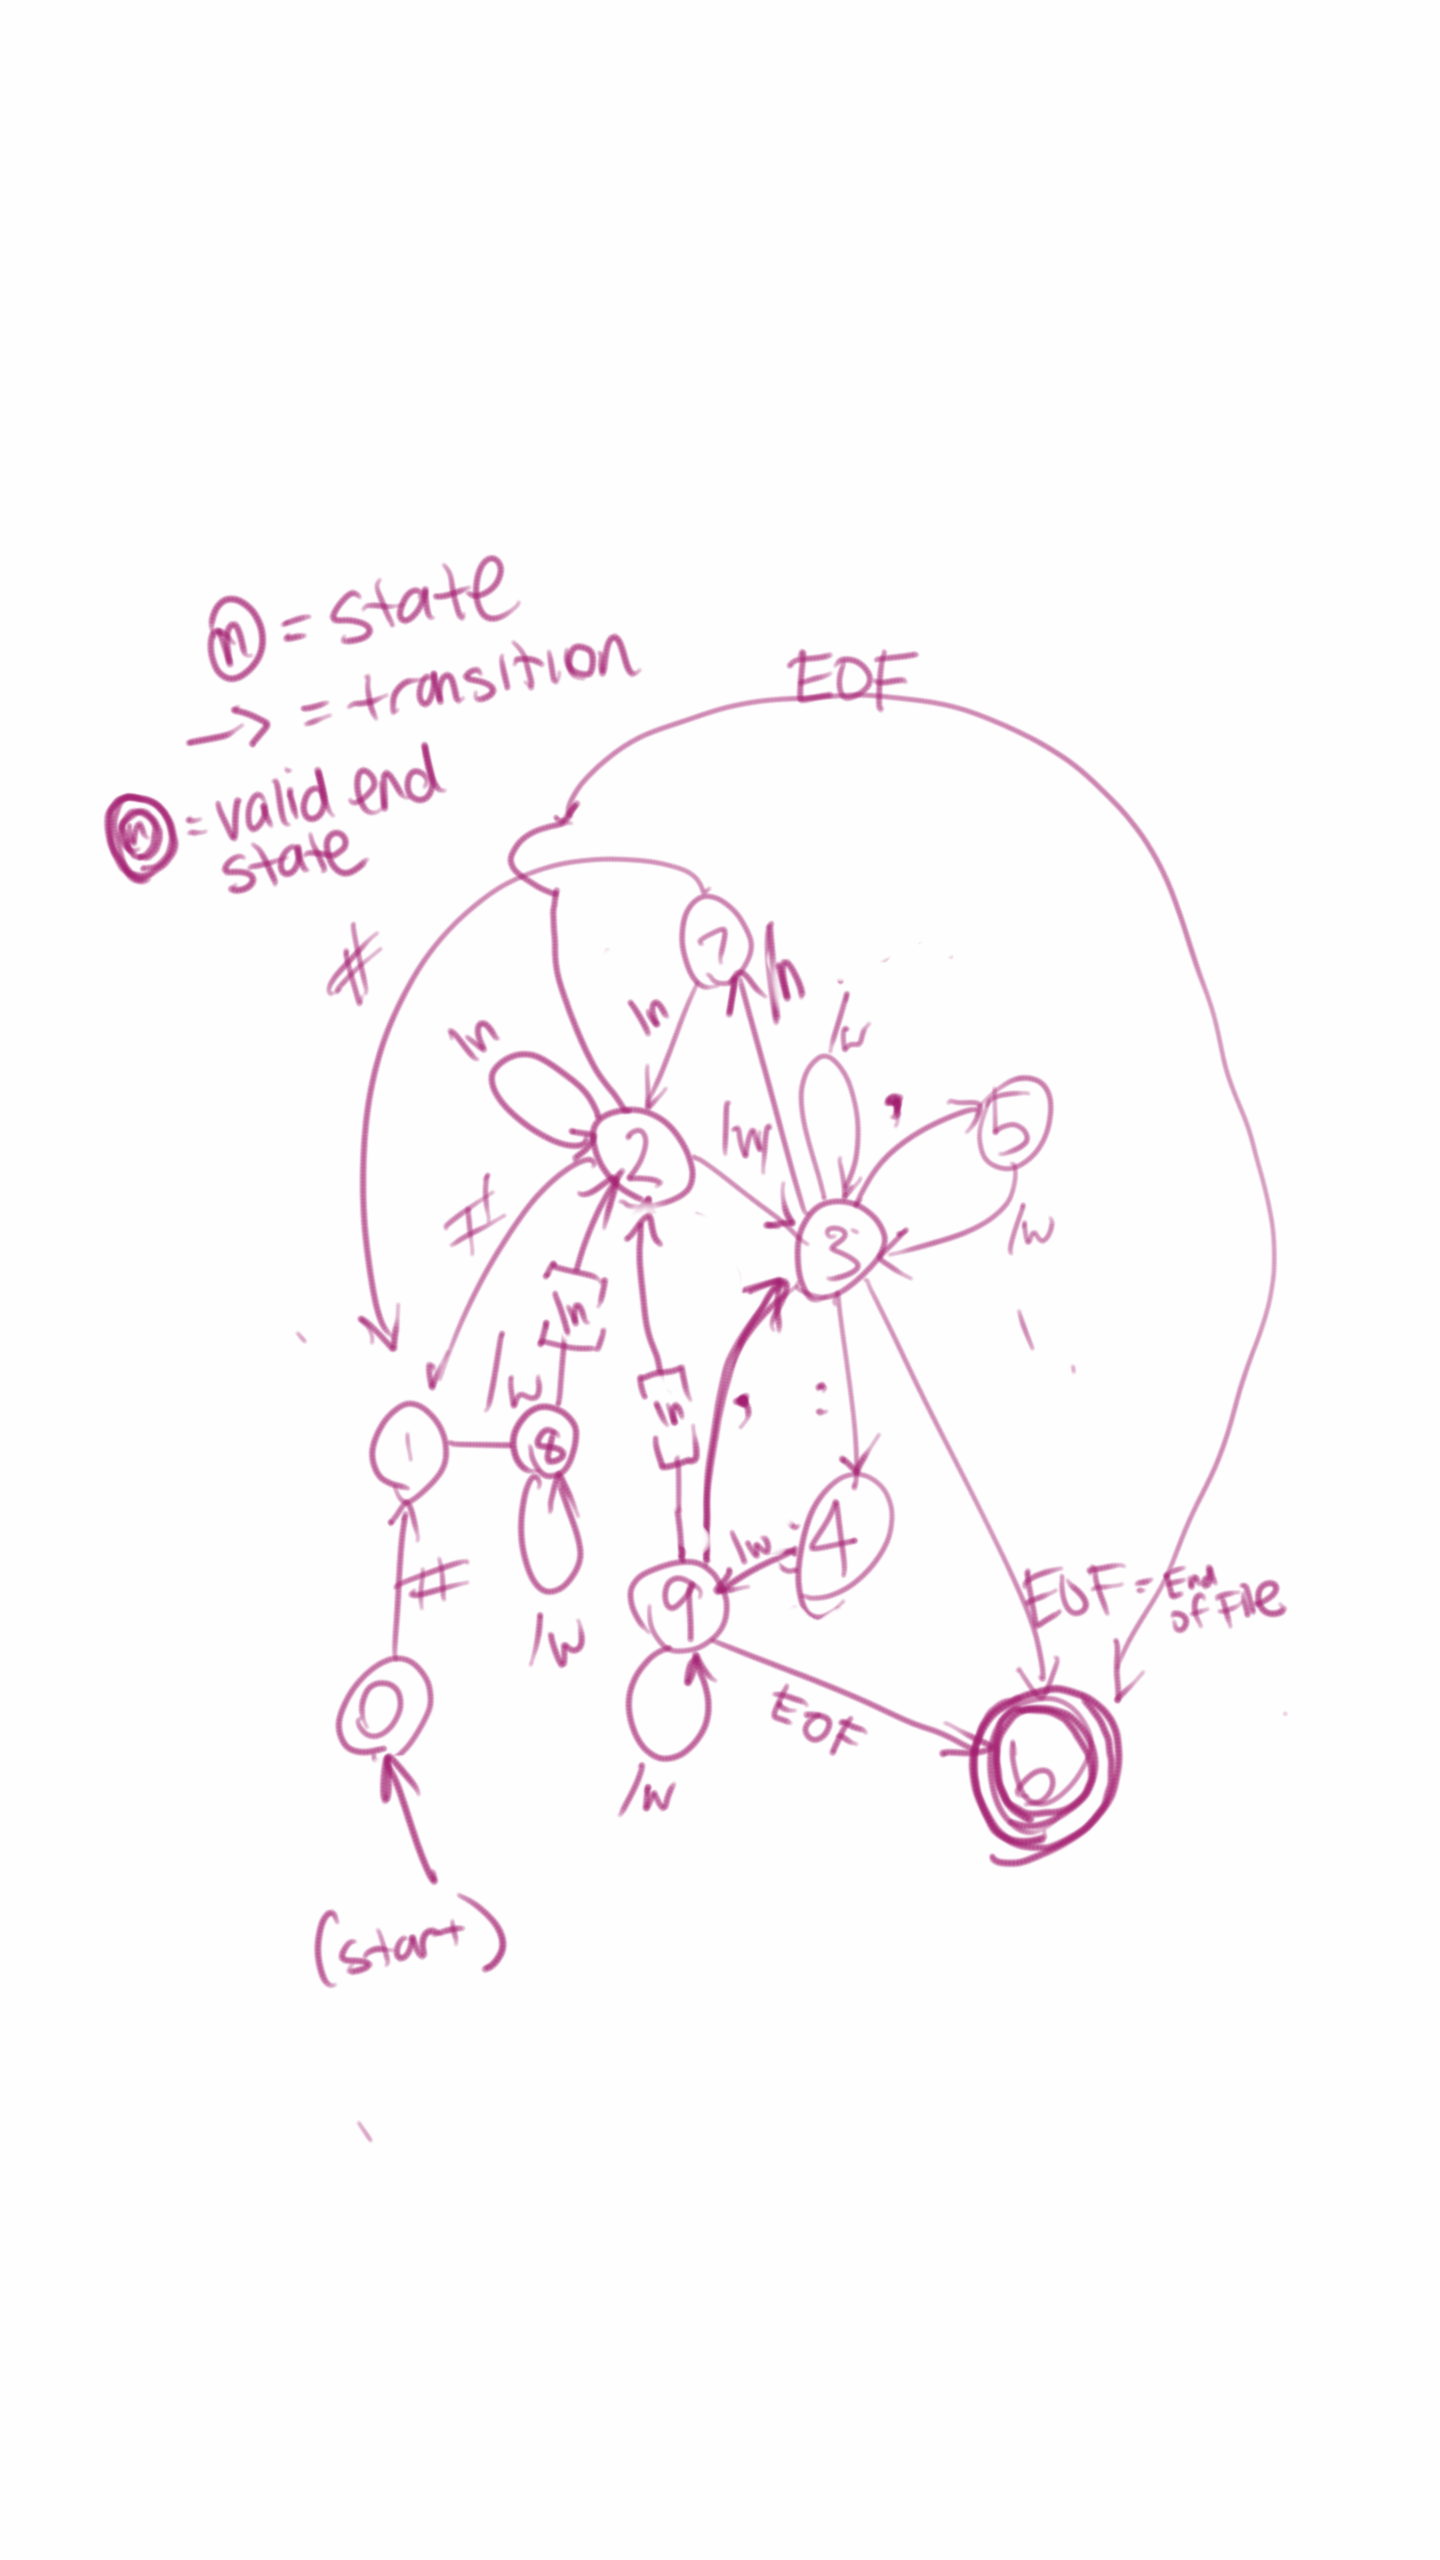 n = state
→ = transition
n = valid end
state
EOF
#
7
\n
\n
\n
\w
,
5
2
\w
3
\w
#
[\n]
\w
[\n]
,
:
1
8
4
\w
#
9
EOF = End
of File
\w
0
EOF
6
\w
(start)